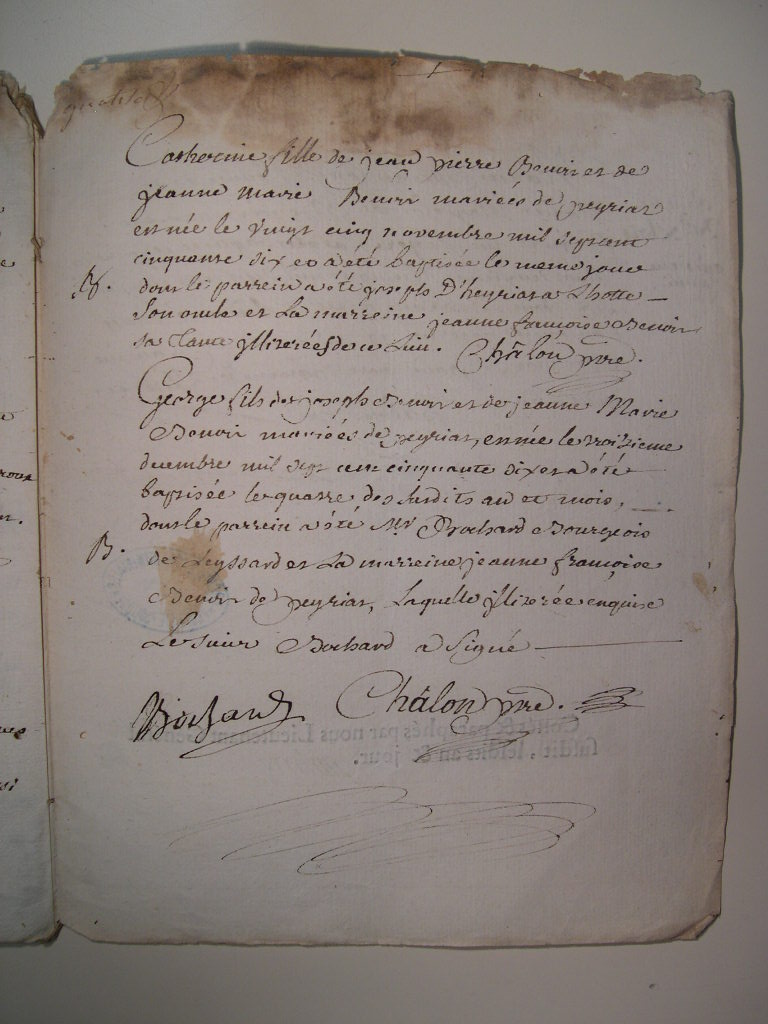 Catherine fille de jean pierre Benoit et de
jeanne marie Benoit mariées de peyriat
est née le vingt cinq novembre mil sept cent
cinquante six et a été baptisée le meme jour
B. dont le parrein a été joseph D'heyriat a Lhotte
Son oncle et La marreine jeanne françoise Benoit
sa Tante jllitereés de ce Lieu. Châlon ptre.
George fils de joseph Benoit et de jeanne Marie
Benoit mariées de peyriat, est née le troisieme
decembre mil sept cent cinquante six et a été
baptisée le quatre des susdits an et mois,
dont le parrein a été Mr Bochard Bourgeois
B. de Leyssard et La marreine jeanne françoise
Benoit de peyriat, Laquelle jlliterée enquise
Le sieur Bochard a Signé
Bochard Châlon ptre.
Cotté & paraphé par nous Lieutenant
susdit, lesdits an & jour.